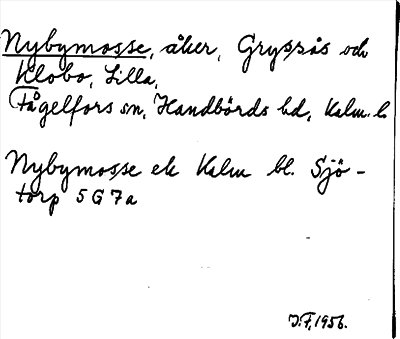 Nybymosse, åker, Gryssås och
Klobo, Lilla,
Fågelfors sn, Handbörds hd, Kalm. l.
Nybymosse ek Kalm bl. Sjö-
torp 5 G 7a
J.F. 1956.